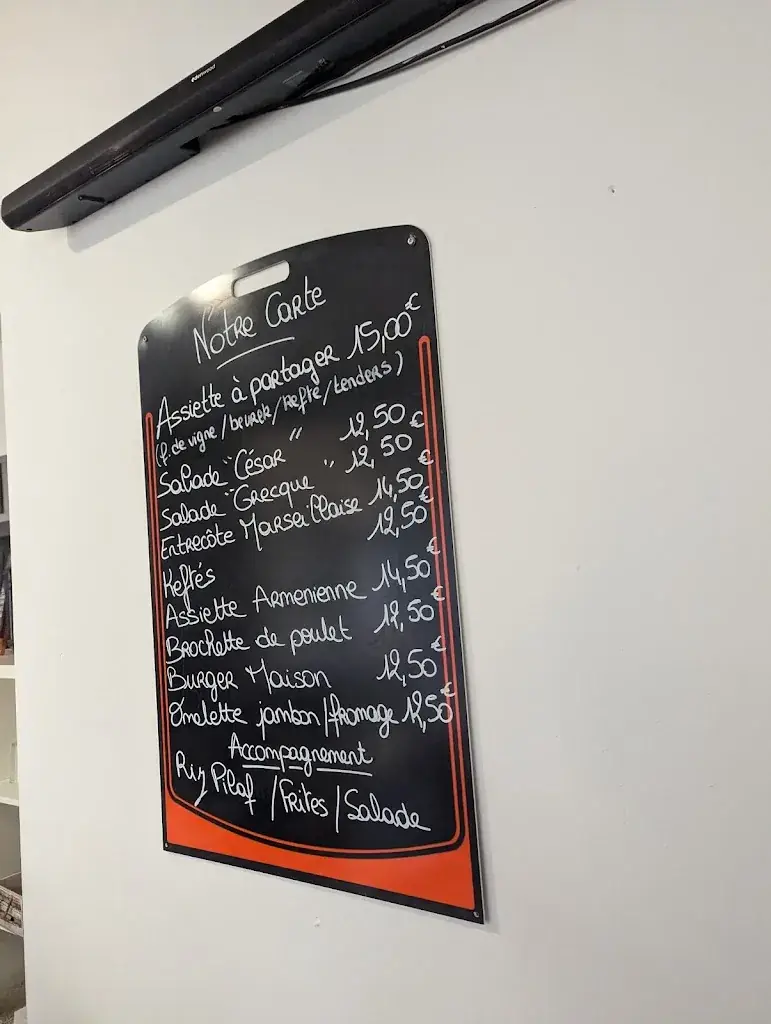 edenwood
Notre Carte
Assiette à partager 15,00€
(f. de vigne / beurek / kefte / tenders)
Salade "César" 12,50€
Salade "Grecque" 12,50€
Entrecôte Marseillaise 14,50€
Keftés 12,50€
Assiette Armenienne 14,50€
Brochette de poulet 12,50€
Burger Maison 12,50€
Omelette jambon/fromage 12,50€
Accompagnement
Riz Pilaf / Frites / Salade